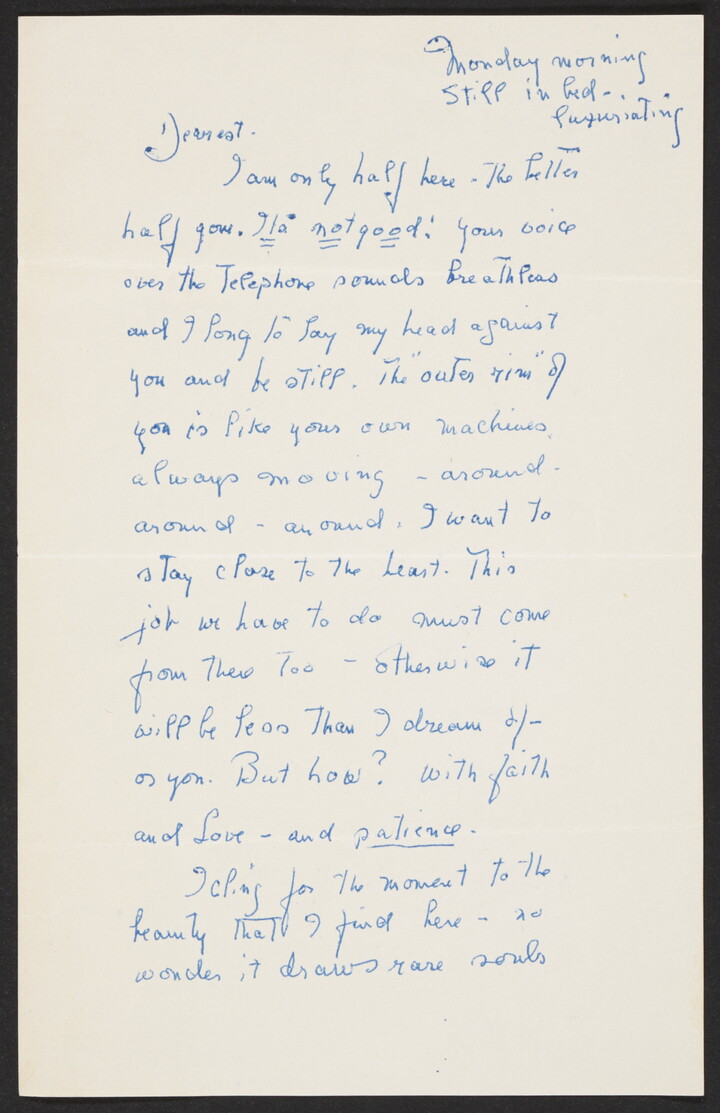 Monday morning
Still in bed -
luxuriating
Dearest.
I am only half here - The better
half gone. It's not good! Your voice
over the Telephone sounds breathless
and I long to lay my head against
you and be still. The "outer rim" of
you is like your own machines,
always moving - around -
around - around. I want to
stay close to the heart. This
job we have to do must come
from there too - otherwise it
will be less Than I dream of -
or you. But how? With faith
and Love - and patience.
I cling for the moment to the
beauty that I find here - no
wonder it draws rare souls